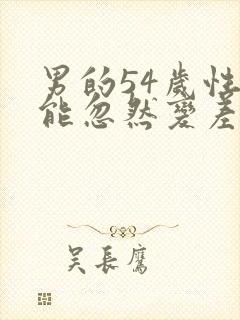 男的54歲性
能忽然變差
吳長鷹